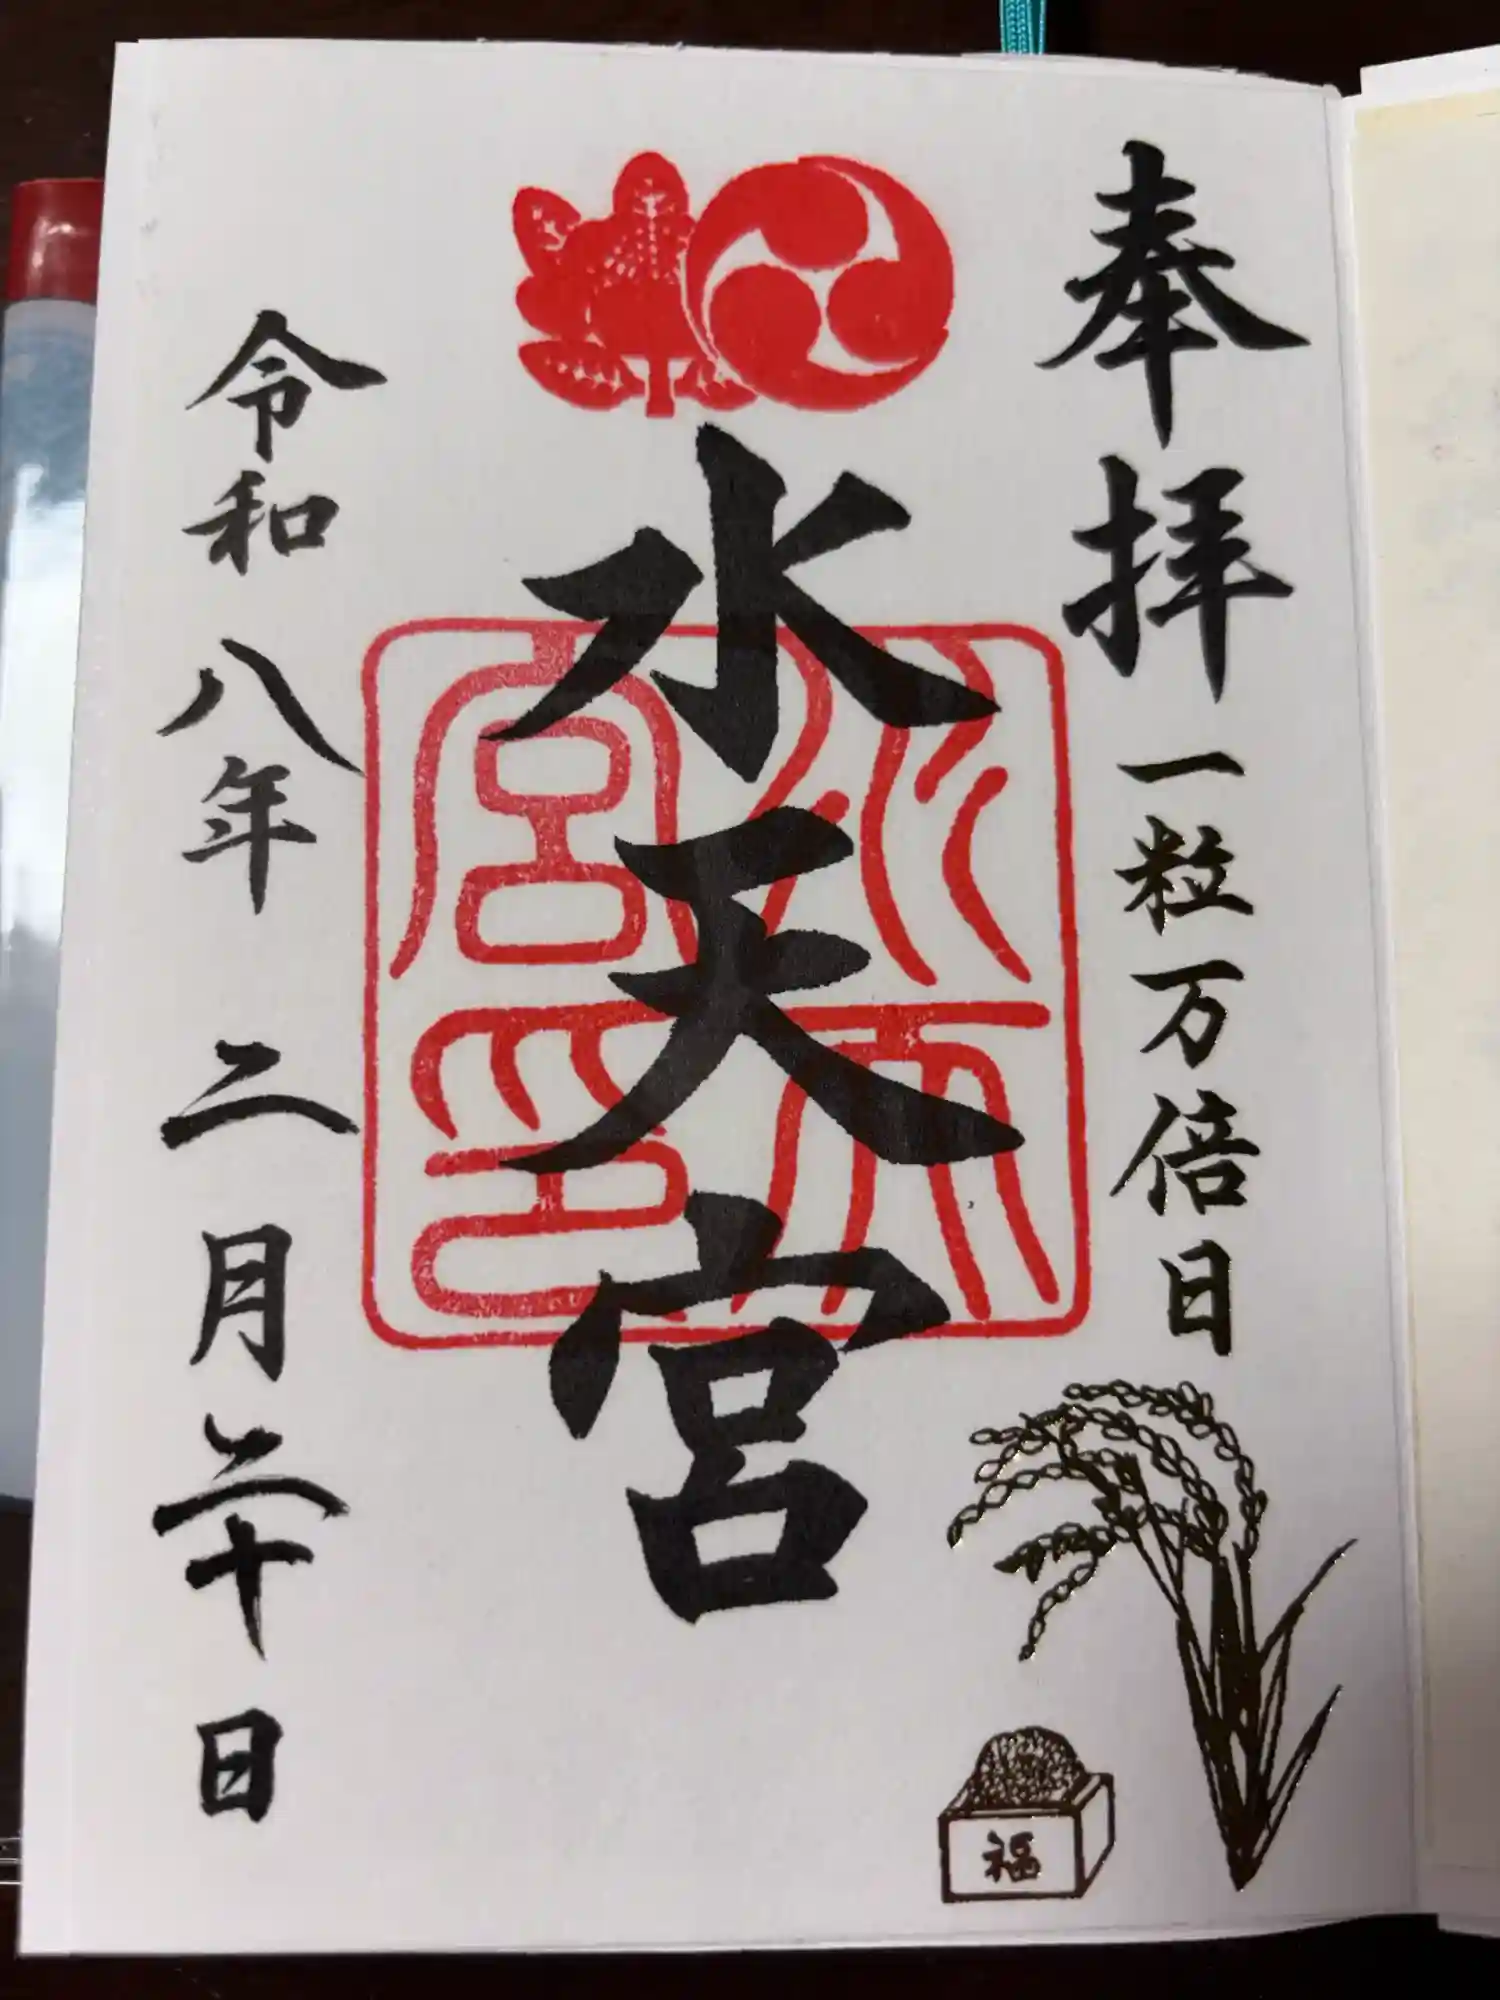 奉拝
一粒万倍日
水天宮
水天宮印
令和八年二月二十日
福